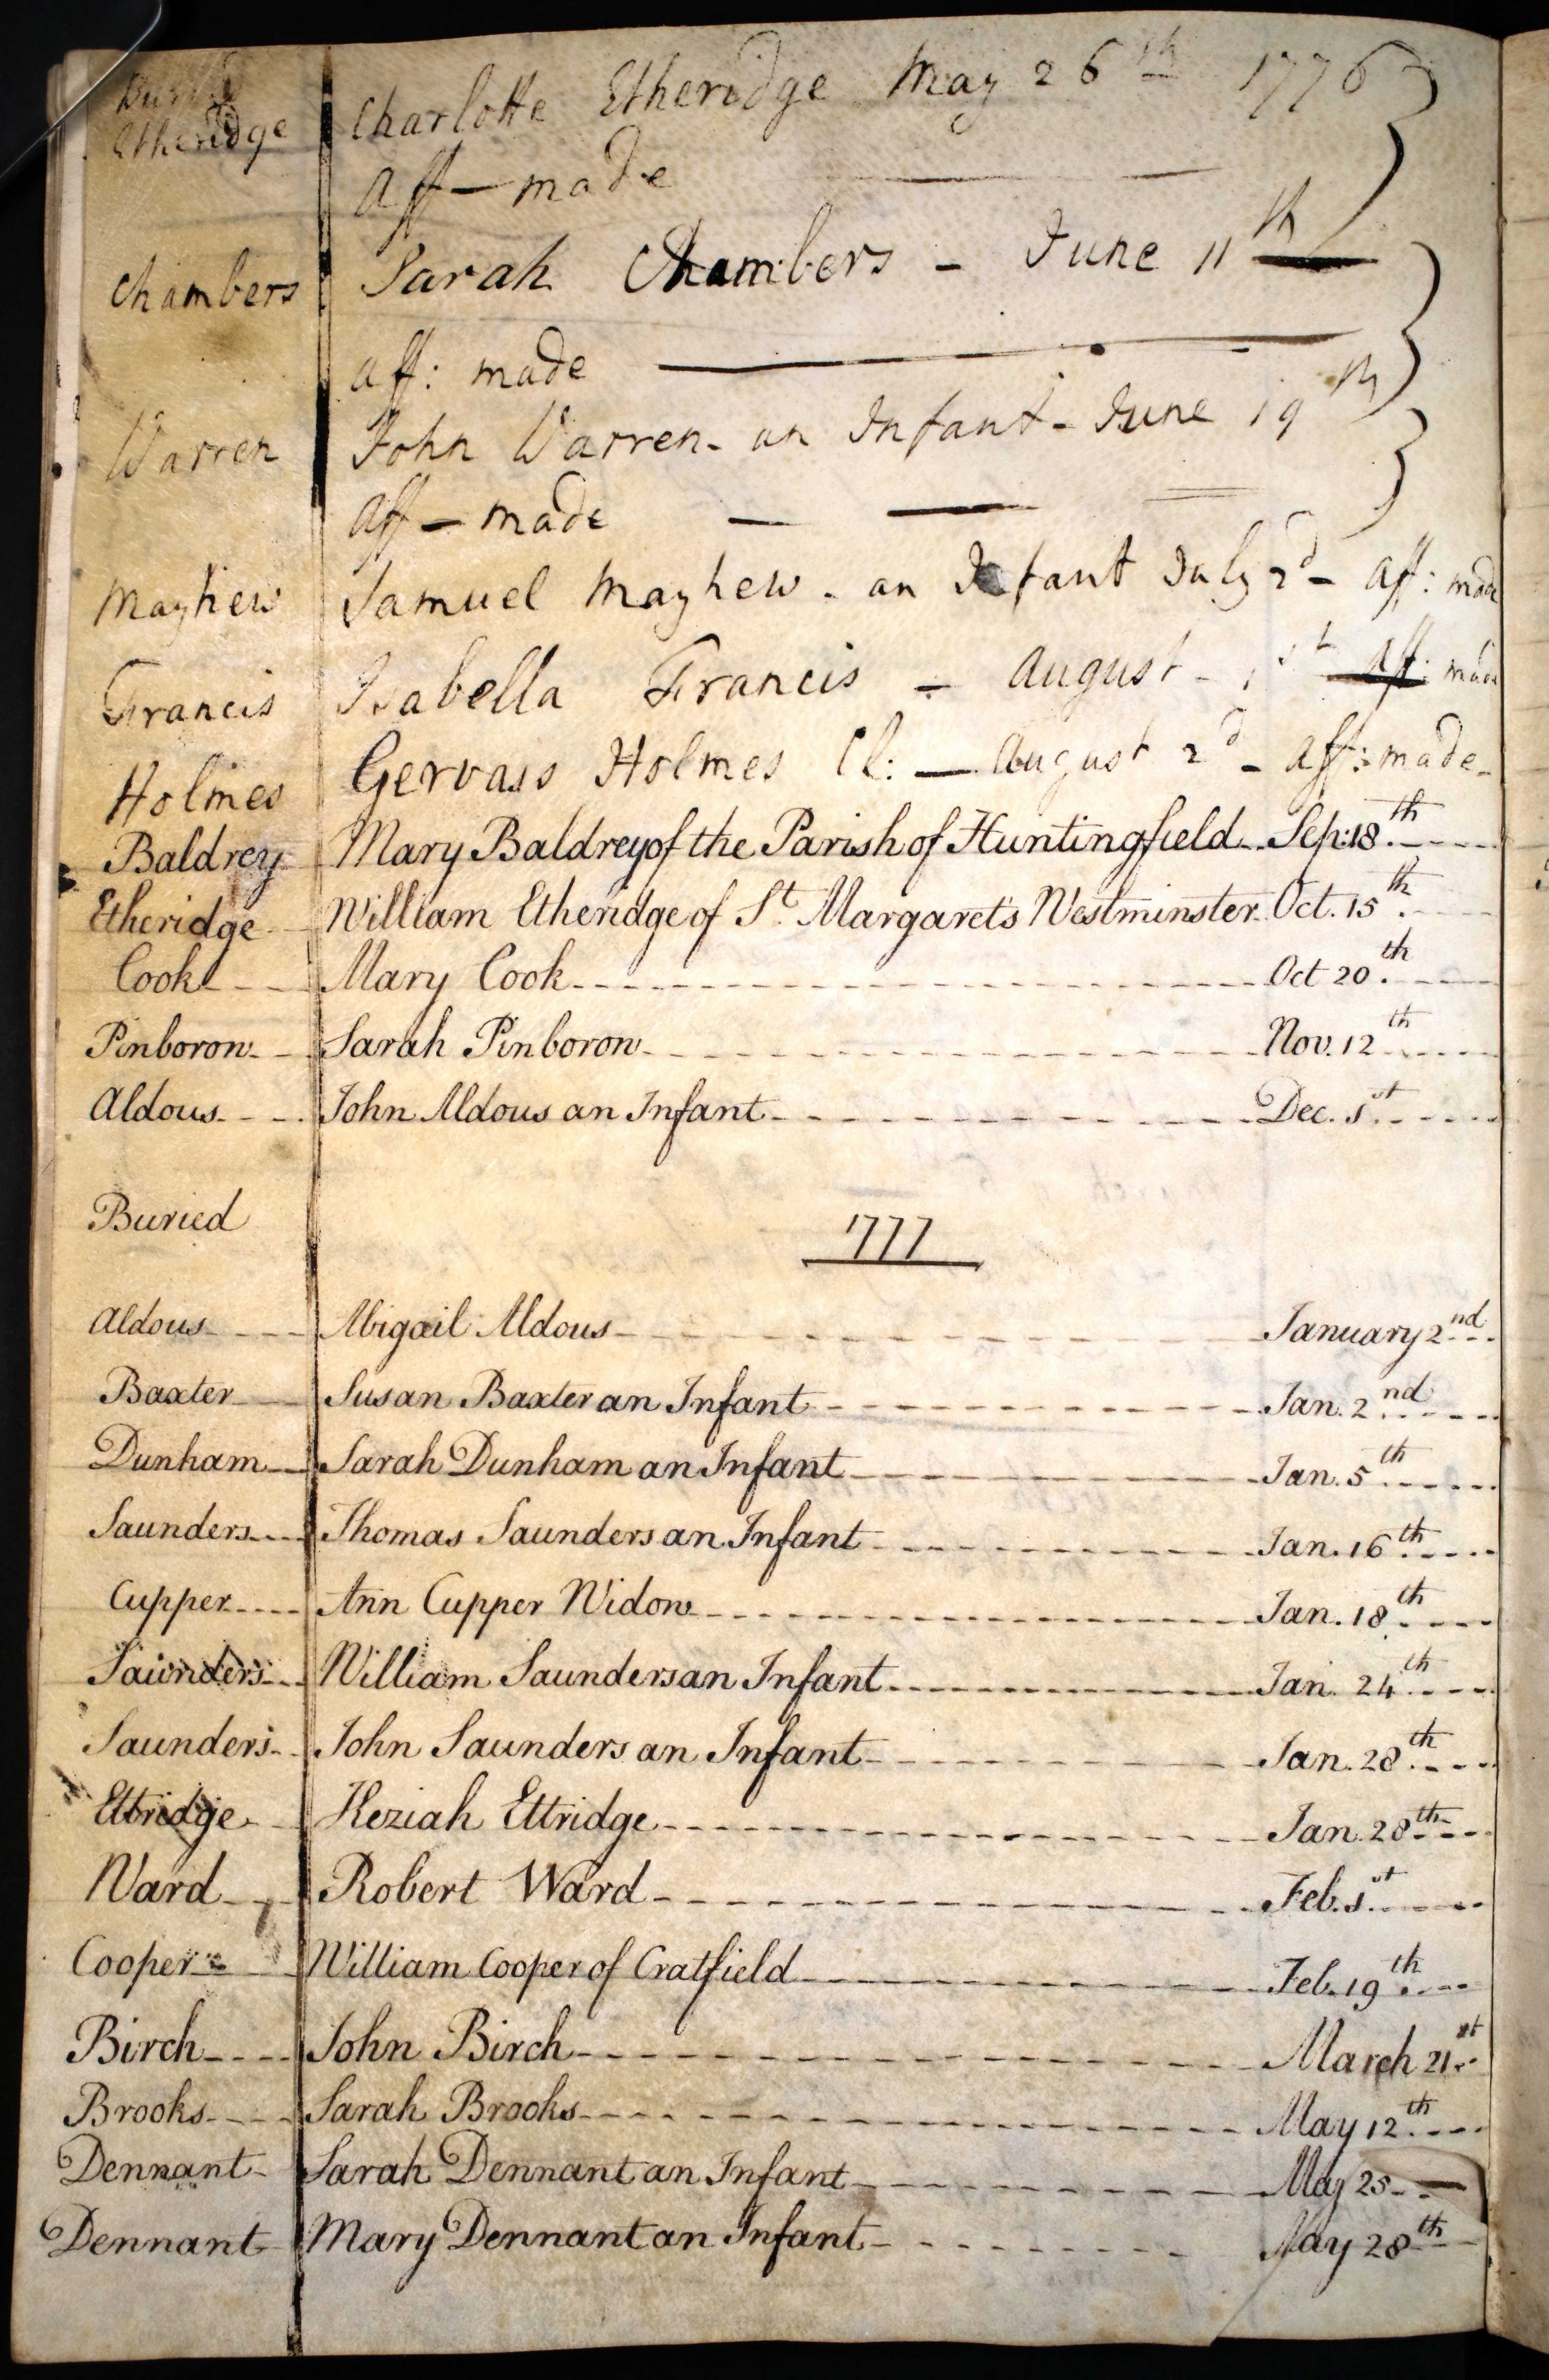 Buried
Etheridge Charlotte Etheridge May 26th 1776
aff - made
Chambers Sarah Chambers - June 11th
aff: made
Warren John Warren - an Infant - June 19th
aff - made
Mayhew Samuel Mayhew - an Infant July 2d - aff: made
Francis Isabella Francis - August - 1st aff: made
Holmes Gervass Holmes Cl: - August 2d - aff: made
Baldrey Mary Baldrey of the Parish of Huntingfield Sep: 18th
Etheridge William Etheridge of St Margaret's Westminster Oct. 15th
Cook Mary Cook Oct 20th
Pinboron Sarah Pinboron Nov. 12th
Aldous John Aldous an Infant Dec. 1st
Buried 1777
Aldous Abigail Aldous January 2nd
Baxter Susan Baxter an Infant Jan. 2nd
Dunham Sarah Dunham an Infant Jan. 5th
Saunders Thomas Saunders an Infant Jan. 16th
Cupper Ann Cupper Widow Jan. 18th
Saunders William Saunders an Infant Jan. 24th
Saunders John Saunders an Infant Jan. 28th
Ettridge Keziah Ettridge Jan. 28th
Ward Robert Ward Feb. 1st
Cooper William Cooper of Cratfield Feb. 19th
Birch John Birch March 21st
Brooks Sarah Brooks May 12th
Dennant Sarah Dennant an Infant May 25
Dennant Mary Dennant an Infant May 28th